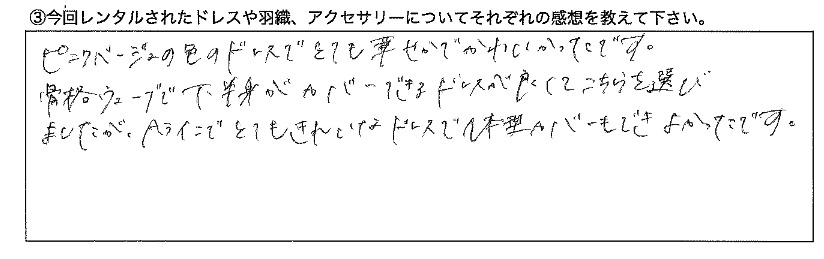 ③今回レンタルされたドレスや羽織、アクセサリーについてそれぞれの感想を教えて下さい。
ピンクベージュの色のドレスでとても華やかでかわいかったです。
骨格ウェーブで下半身がカバーできるドレスが良くてこちらを選び
ましたが、Aラインでとてもきれいなドレスで体型カバーもでき よかったです。